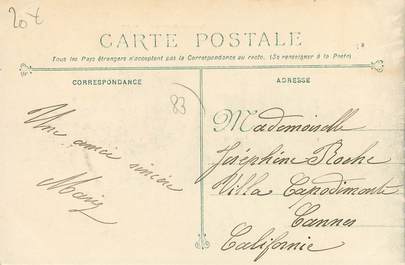 20 €
CARTE POSTALE
Tous les Pays étrangers n'acceptent pas la Correspondance au recto. (Se renseigner à la Poste)
CORRESPONDANCE
ADRESSE
83
Une amie sincère
Marie
Mademoiselle
Joséphine Roche
Villa Canodimonte
Cannes
Californie